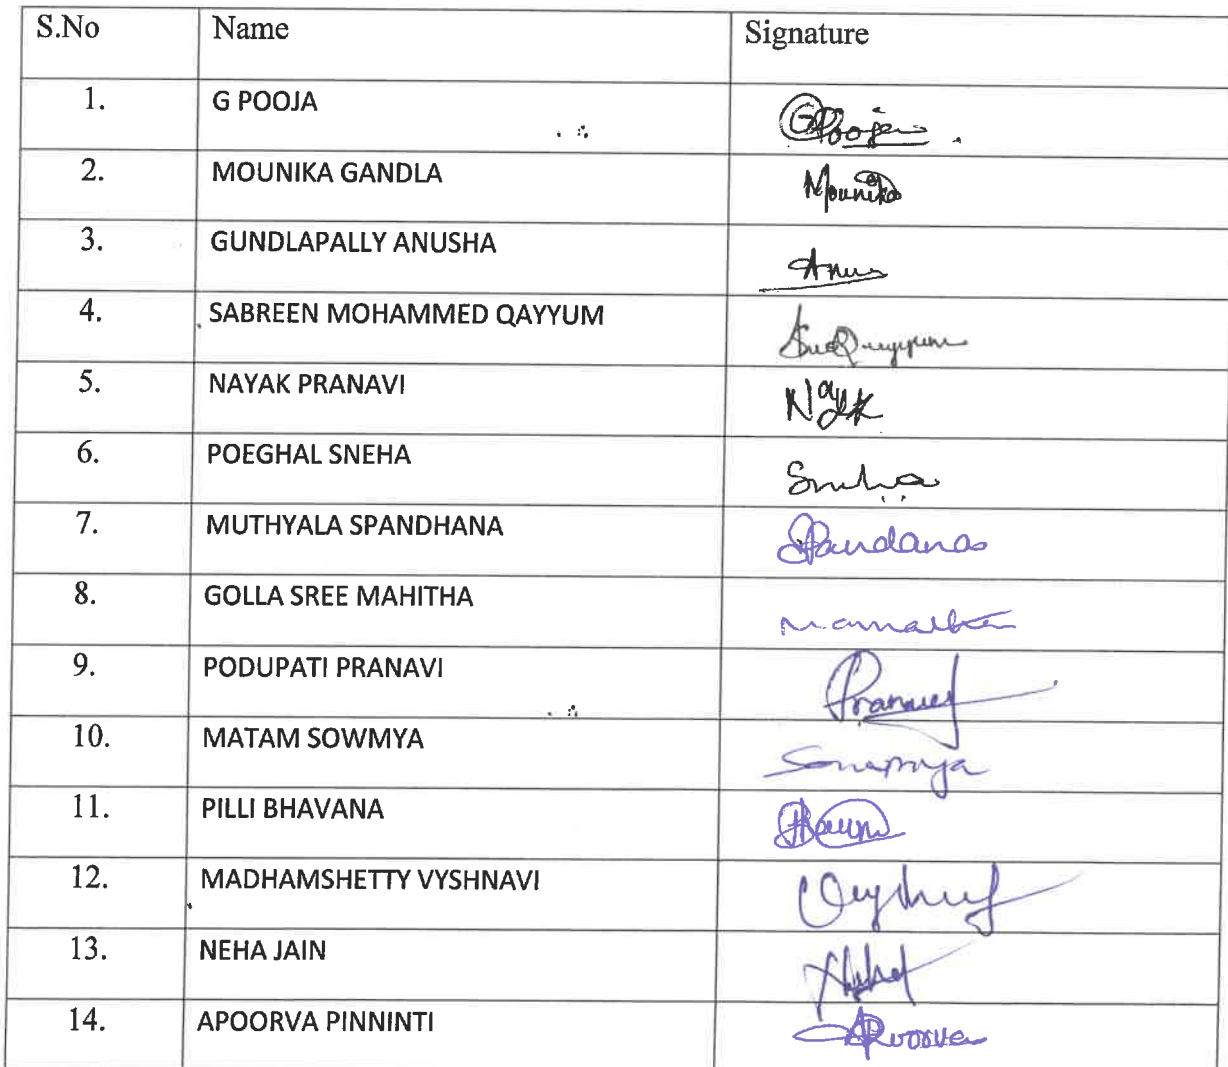 S.No Name Signature
1. G POOJA GPooja
2. MOUNIKA GANDLA Mounika
3. GUNDLAPALLY ANUSHA Anus
4. SABREEN MOHAMMED QAYYUM
5. NAYAK PRANAVI Nayak
6. POEGHAL SNEHA Sneha
7. MUTHYALA SPANDHANA Spandana
8. GOLLA SREE MAHITHA
9. PODUPATI PRANAVI
10. MATAM SOWMYA
11. PILLI BHAVANA
12. MADHAMSHETTY VYSHNAVI
13. NEHA JAIN
14. APOORVA PINNINTI APoorva